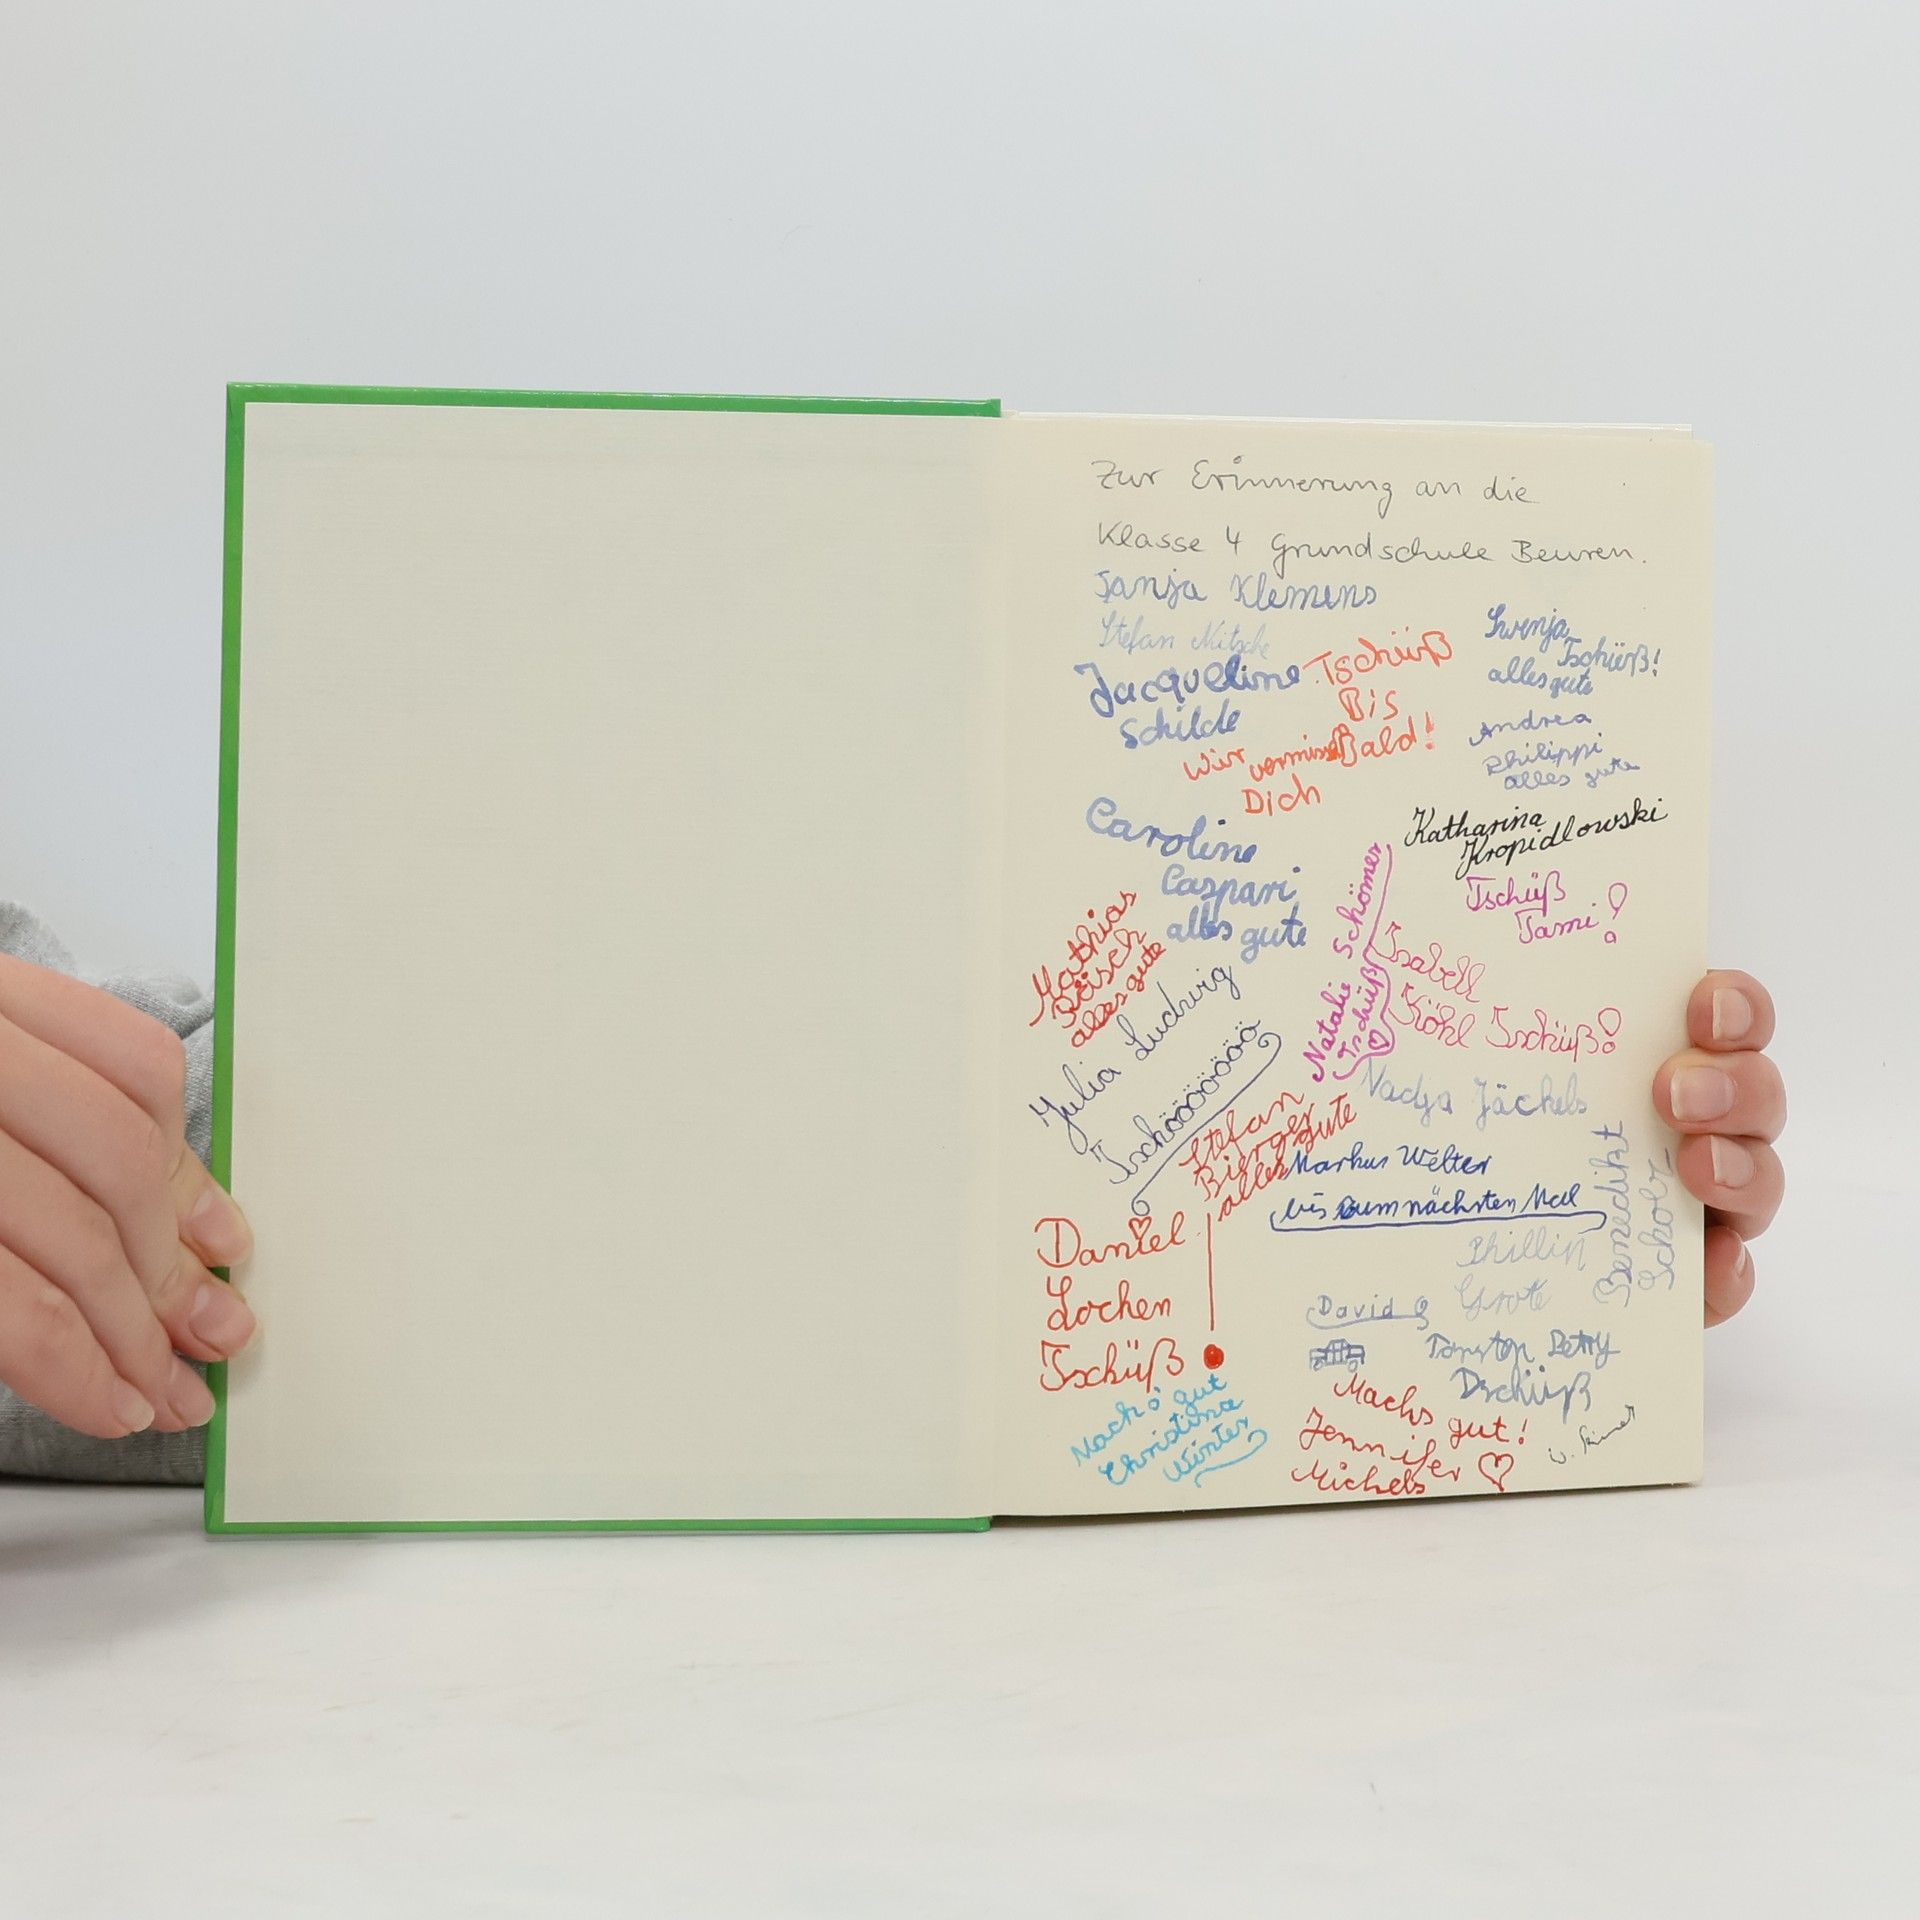 Zur Erinnerung an die
Klasse 4 Grundschule Beuren.
Tanja Klemens
Stefan Nitsche
Jacqueline
Schilde
Tschüß
Bis
Bald!
Wir vermissen
Dich
Swenja
Tschüß!
alles gute
Andrea
Philippi
alles gute
Caroline
Caspari
alles gute
Katharina
Kropidlowski
Tschüß
Tami!
Mathias
Reisch
alles gute
Natalie Schömer
Tschüß
Isabell
Köhl Tschüß!
Julia Ludwig
Tschöööööööö
Nadja Jäckels
Stefan
Bierger
alles gute
Markus Welter
bis zum nächsten Mal
Benedikt
Scholz
Daniel
Lochen
Tschüß
Phillip
Grote
David
Petry
Dschüß
Mach's gut
Christina
Winter
Machs gut!
Jennifer
Michels